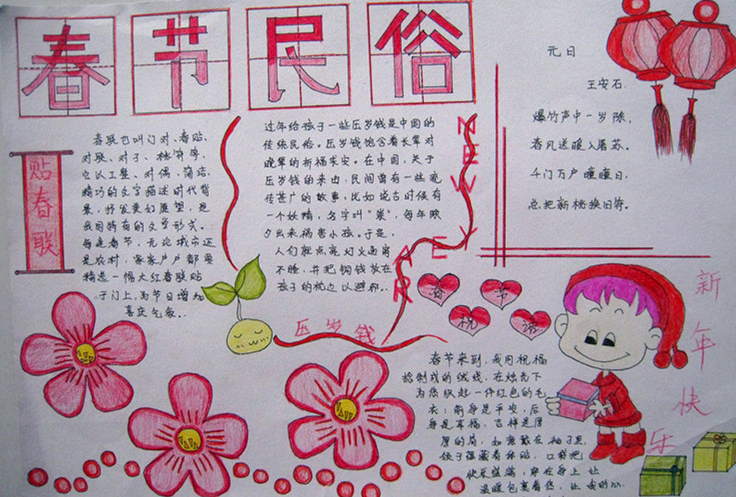 春节民俗
贴春联
春联也叫门对、春贴、
对联、对子、桃符等，
它以工整、对偶、简洁、
精巧的文字描述时代背
景，抒发美好愿望，是
我国特有的文学形式。
每逢春节，无论城市还
是农村，家家户户都要
精选一幅大红春联贴
于门上，为节日增加
喜庆气氛。
过年给孩子一些压岁钱是中国的
传统民俗。压岁钱饱含着长辈对
晚辈的祈福求安。在中国，关于
压岁钱的来由，民间留有一些流
传甚广的故事，比如说古时候有
一个妖精，名字叫"祟"，每年除
夕出来祸害小孩。于是，
人们就点亮灯火通宵
不睡，并把铜钱放在
孩子的枕边以避邪。
压岁钱
NEW YEAR
元日
王安石
爆竹声中一岁除，
春风送暖入屠苏。
千门万户曈曈日，
总把新桃换旧符。
春节
祝福
春节来到，我用祝福
绘制成的优线，在烛光下
为你织起一件红色的毛
衣：前身是平安，后
身是幸福，吉祥是厚
厚的肩，如意戴在袖子里，
领子蕴藏着体贴，口袋把
快乐盛满，穿在身上让
温暖包裹着您，让我的心
新年快乐